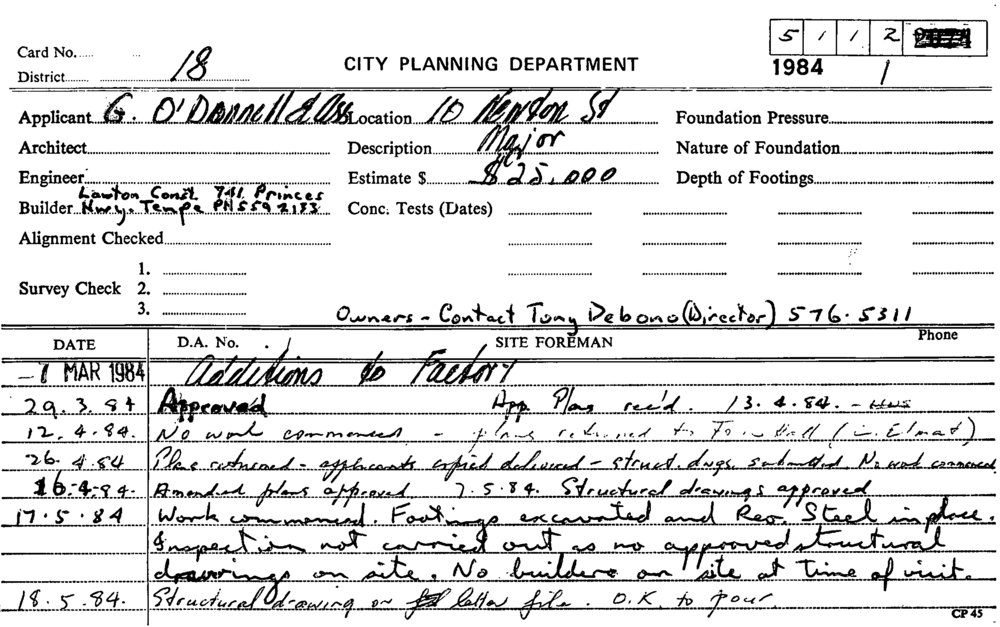 5 1 1 2
Card No.
District 18
CITY PLANNING DEPARTMENT
1984 1
Applicant G. O'Donnell & Ass Location 10 Newton St Foundation Pressure
Architect Description Major Nature of Foundation
Engineer Estimate $ $25,000 Depth of Footings
Lawton Const. 741 Princes
Builder Hwy. Tempe PH 559 2133 Conc. Tests (Dates)
Alignment Checked
1.
Survey Check 2.
3.
Owners - Contact Tony Debono (Director) 576-5311
DATE D.A. No. SITE FOREMAN Phone
-7 MAR 1984 Additions to Factory
29.3.84 Approved App. Plans rec'd. 13.4.84.
12.4.84. No work commenced - plans returned to Town Hall
26.4.84 Plans returned - applicants copied delivered - struct. dwgs. submitted. No work commenced
16.4.84. Amended plans approved 7.5.84. Structural drawings approved
17.5.84 Work commenced. Footings excavated and Reo. Steel in place.
Inspection not carried out as no approved structural
drawings on site. No builders on site at time of visit.
18.5.84. Structural drawing on letter file. O.K. to pour.
CP 45